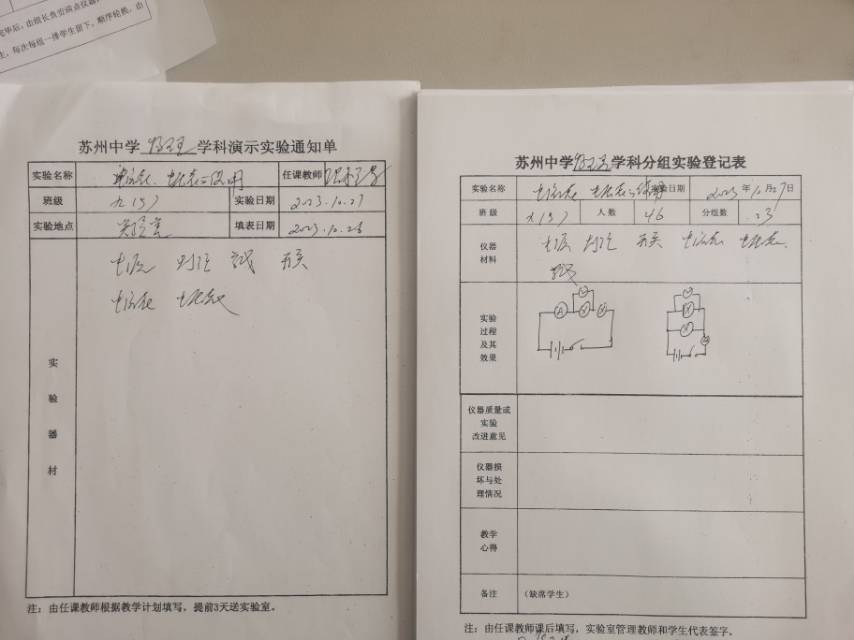 完毕后,由组长负责清点仪器
生,每次每组一排学生留下,顺序轮换,由
苏州中学 物理 学科演示实验通知单
实验名称 电流表、电压表的使用 任课教师
班级 九(5) 实验日期 2023.10.27
实验地点 实验室 填表日期 2023.10.26
实验器材
电源 灯泡 导线 开关
电流表 电压表
注:由任课教师根据教学计划填写,提前3天送实验室。
苏州中学 物理 学科分组实验登记表
实验名称 电流表 电压表的 实验日期 2023年10月27日
班级 九(5) 人数 46 分组数 23
仪器材料
电源 灯泡 开关 电流表 电压表
导线
实验过程及其效果
仪器质量或实验改进意见
仪器损坏与处理情况
教学心得
备注 (缺席学生)
注:由任课教师课后填写,实验室管理教师和学生代表签字。